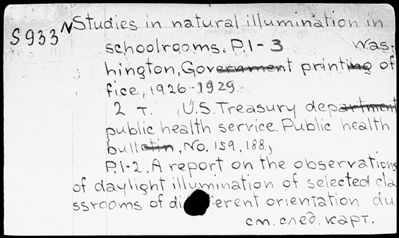 S933 N Studies in natural illumination in
schoolrooms. P.1-3 Was-
hington, Government printing of
fice, 1926-1929.
2 т. (U.S. Treasury department
public health service. Public health
bulletin, No. 159, 188)
P.1-2. A report on the observations
of daylight illumination of selected cla
ssrooms of different orientation du
см. след. карт.